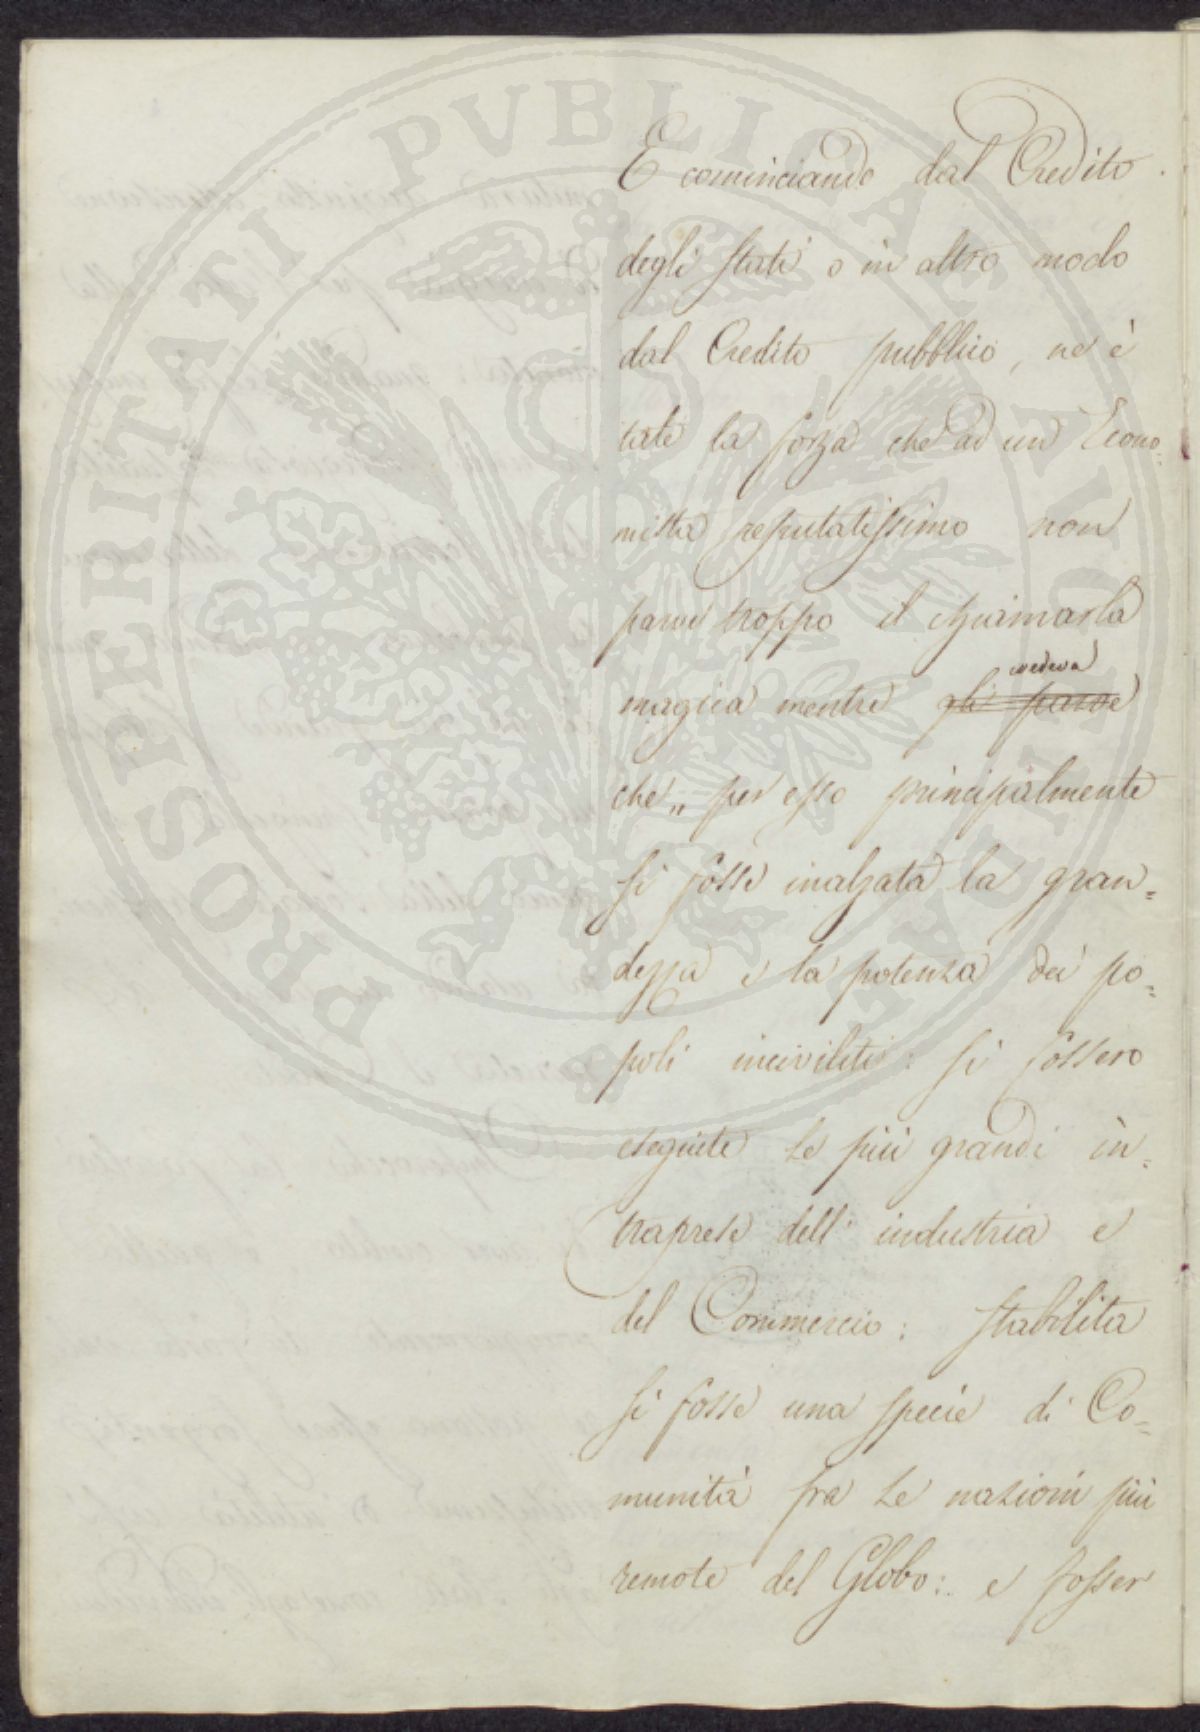 PROSPERITATI PUBLICAE AUGENDAE
E cominciando dal Credito
degli Stati o in altro modo
dal Credito pubblico, ne è
tale la forza che ad un Econo=
mista reputatissimo non
parve troppo il chiamarla
credeva
magica mentre gli parve
che„ per esso principalmente
si fosse inalzata la gran=
dezza e la potenza dei po=
poli inciviliti: si fossero
eseguite le più grandi in=
traprese dell'industria e
del Commercio: stabilita
si fosse una specie di Co=
munità fra le nazioni più
remote del Globo: e fosser